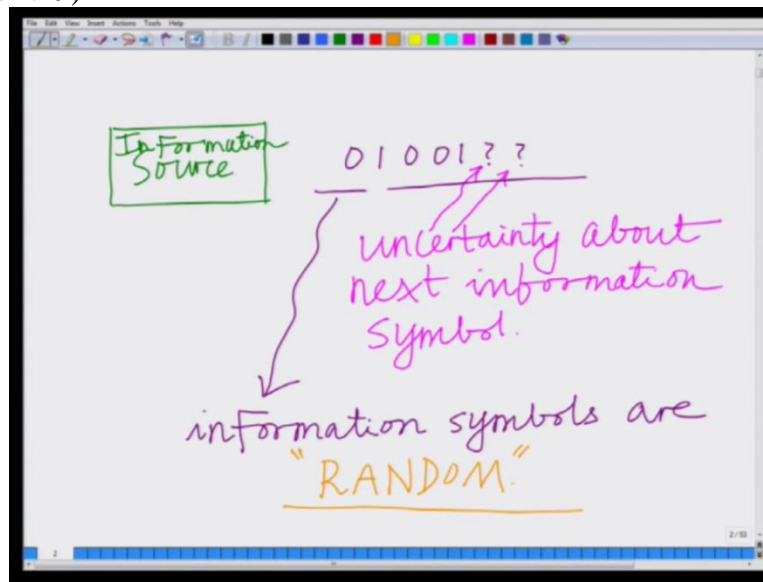 File Edit View Insert Actions Tools Help
Information
Source
0 1 0 0 1 ? ?
uncertainty about
next information
symbol.
information symbols are
"RANDOM."
2/53
2